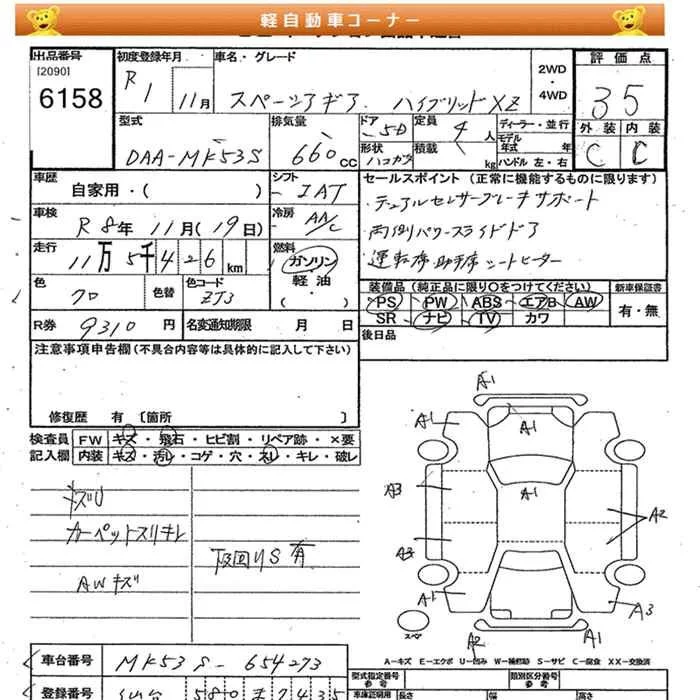 軽自動車コーナー
出品番号
[2090]
6158
初度登録年月
R1 11月
車名・グレード
スペーシアギア ハイブリッドXZ
2WD
・
4WD
評価点
3.5
外装 内装
C C
型式
DAA-MK53S
排気量
660 cc
ドア
5D
形状
ハコカブ
定員
4人
積載
kg
ディーラー・並行
モデル年式 年
ハンドル 左・右
車歴
自家用・( )
シフト
IAT
車検
R8年 11月(19日)
冷房
AA/C
走行
11万5千426km
燃料
ガソリン
・
軽油
・
( )
色
クロ
色替
色コード
ZJ3
R券
9310円
名変通知期限 月 日
セールスポイント (正常に機能するものに限ります)
・デュアルセンサーブレーキサポート
・両側パワースライドドア
・運転席助手席シートヒーター
装備品(純正品に限り○をつけてください)
PS PW ABS エアB AW
SR ナビ TV カワ
新車保証書
有・無
後日品
注意事項申告欄(不具合内容等は具体的に記入して下さい)
修復歴 有 [箇所 ]
検査員記入欄
FW キズ・飛石・ヒビ割・リペア跡・×要
内装 キズ・汚レ・コゲ・穴・スレ・キレ・破レ
キズU
カーペットスリキレ
AWキズ
下回りS有
A1
A1
A1
A1
A3
A2
A3
A1
A3
A2
A1
スペア
A-キズ E-エクボ U-凹み W-補修跡 S-サビ C-腐食 XX-交換済
車台番号
MK53S-654273
登録番号
仙台 580
型式指定番号
参考
類別区分番号
参考
車庫証明用
長さ
幅
高さ